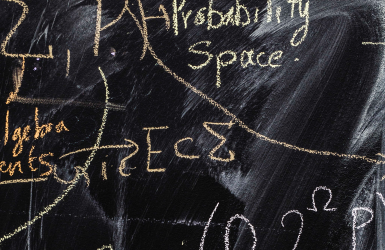 Σ, P
Probability
Space.
lgebra
ents: E ⊂ Σ
(Ω, 2^Ω, P